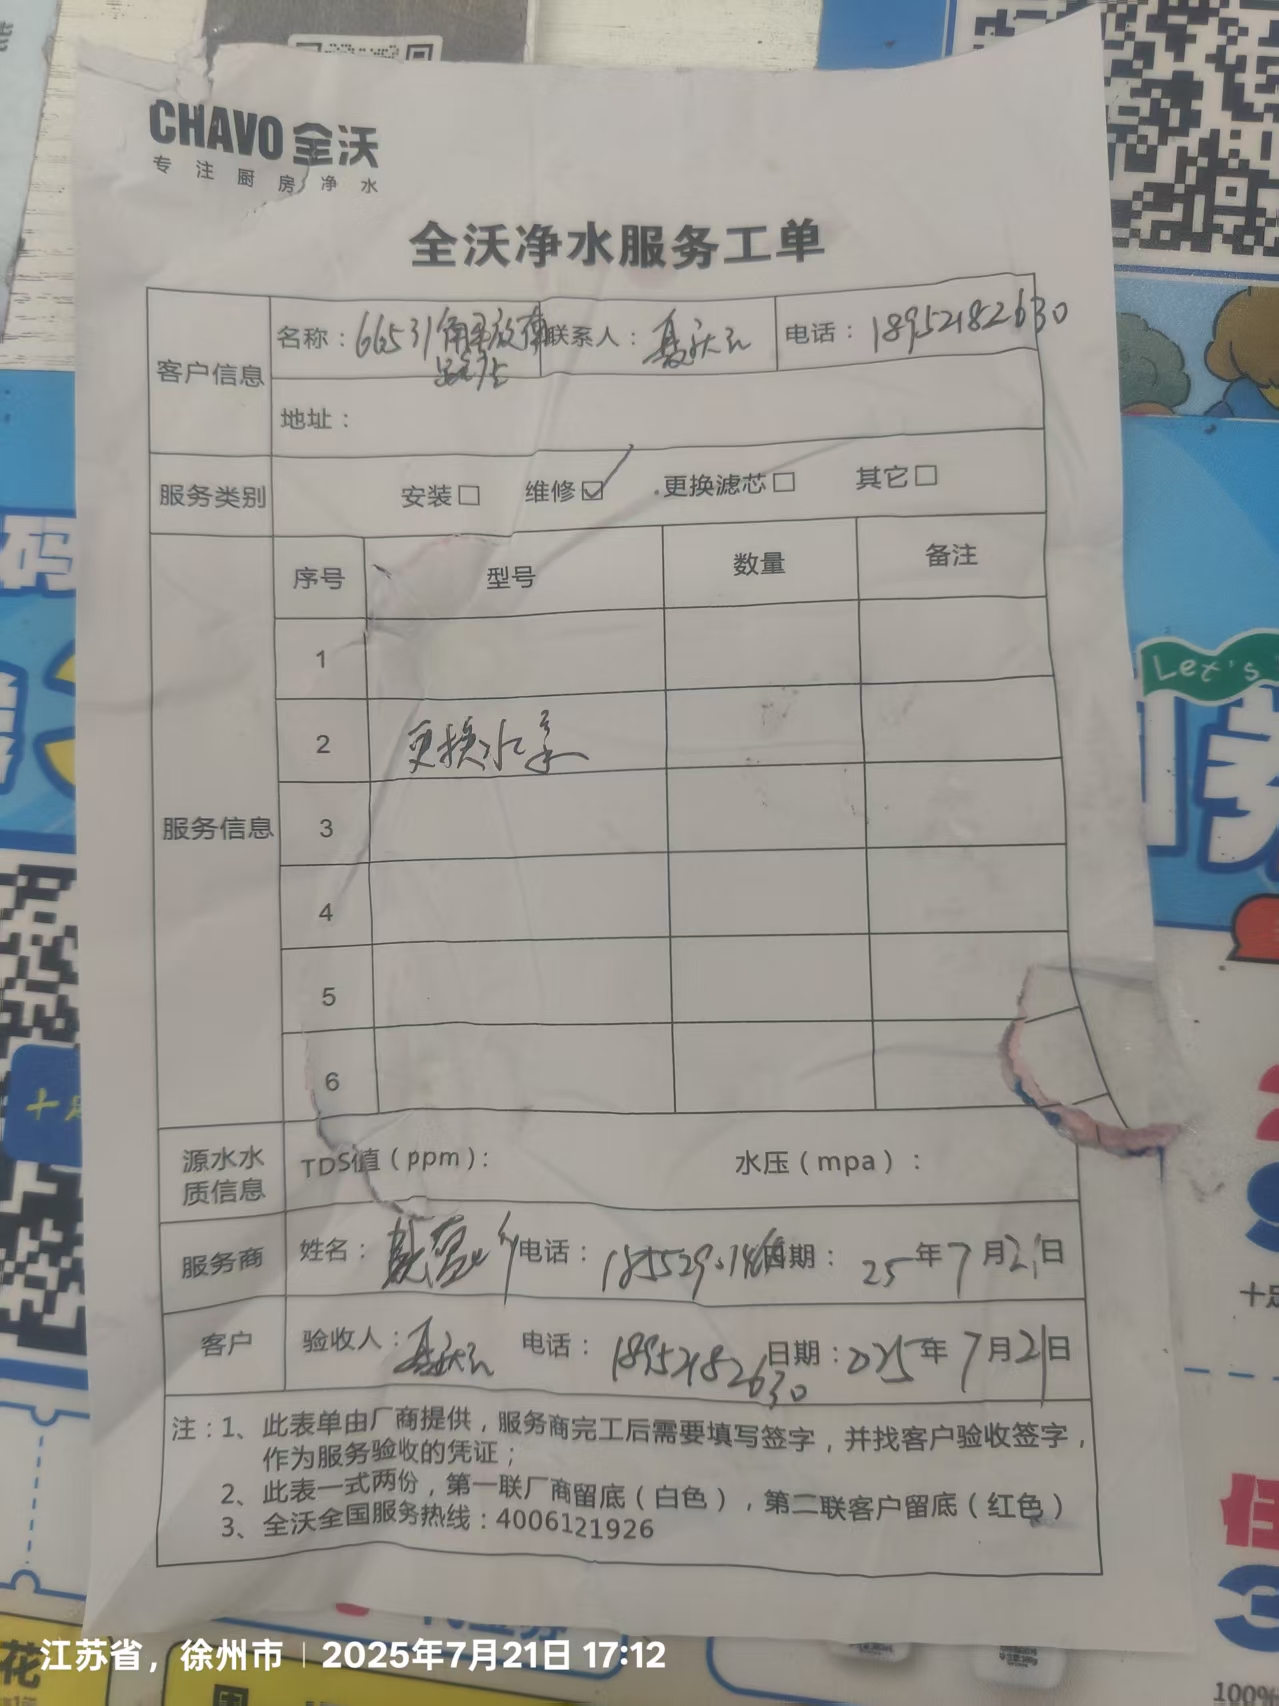 CHAVO 全沃
专注厨房净水
全沃净水服务工单
客户信息
名称：66531 联系人： 电话：18952182630
地址：
服务类别 安装□ 维修☑ 更换滤芯□ 其它□
服务信息
序号 型号 数量 备注
1
2 更换水泵
3
4
5
6
源水水质信息 TDS值（ppm）： 水压（mpa）：
服务商 姓名： 电话： 日期：25年7月21日
客户 验收人： 电话：18952182630 日期：2025年7月21日
注：1、此表单由厂商提供，服务商完工后需要填写签字，并找客户验收签字，
作为服务验收的凭证；
2、此表一式两份，第一联厂商留底（白色），第二联客户留底（红色）
3、全沃全国服务热线：4006121926
Let's
码
十足
100%
江苏省，徐州市 | 2025年7月21日 17:12